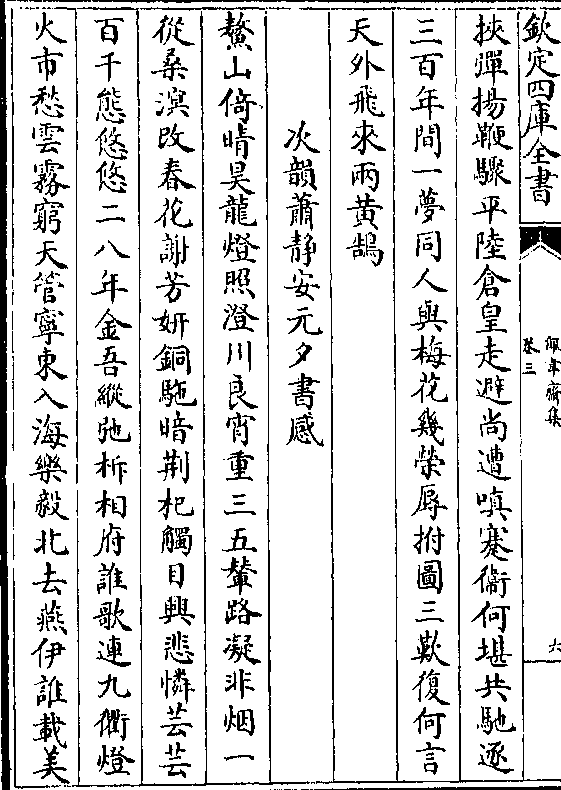 欽定四庫全書
佩韋齋集
卷三
六
挾彈揚鞭驟平陸倉皇走避尚遭嗔蹇衞何堪共馳逐
三百年間一夢同人與梅花幾榮辱拊圖三歎復何言
天外飛來兩黃鵠
次韻蕭静安元夕書感
鰲山倚晴昊龍燈照澄川良宵重三五輦路凝非烟一
從桑溟改春花謝芳妍銅駞暗荆杞觸目興悲憐芸芸
百千態悠悠二八年金吾縱弛柝相府誰歌連九衢燈
火市愁雲霧窮天管寧東入海樂毅北去燕伊誰載美